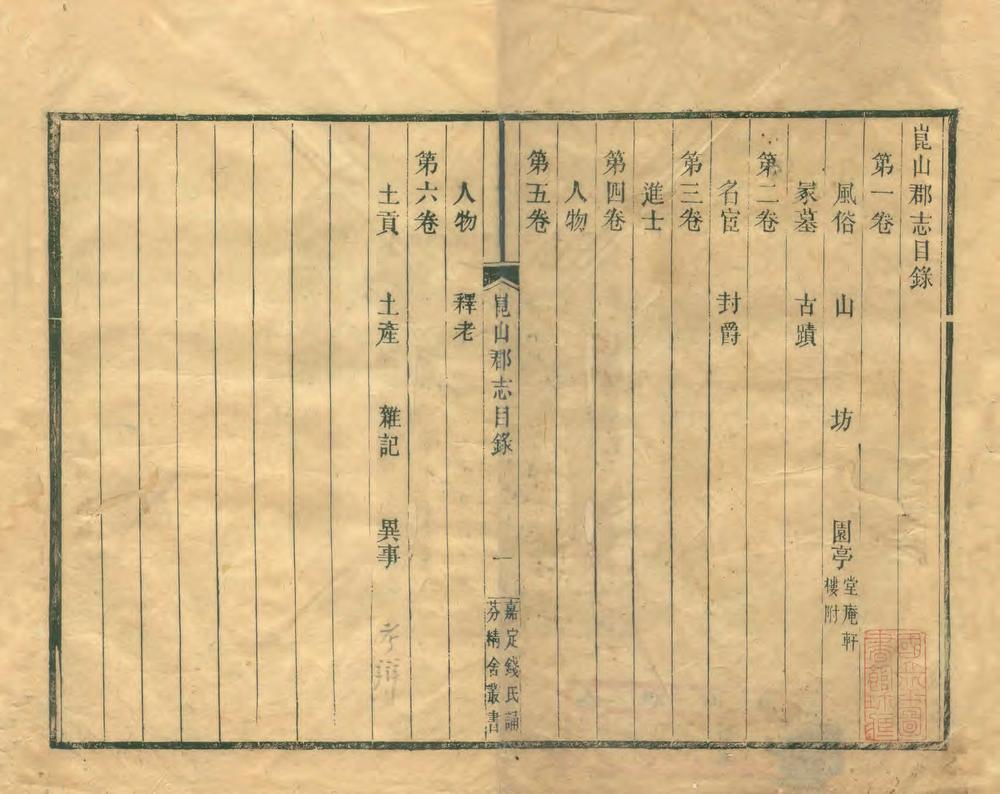 崑山郡志目錄
第一卷
風俗 山 坊 園亭 堂庵軒
樓附
冢墓 古蹟
第二卷
名宦 封爵
第三卷
進士
第四卷
人物
第五卷
崑山郡志目錄 一 嘉定錢氏誦
芬精舍叢書
人物 釋老
第六卷
土貢 土產 雜記 異事